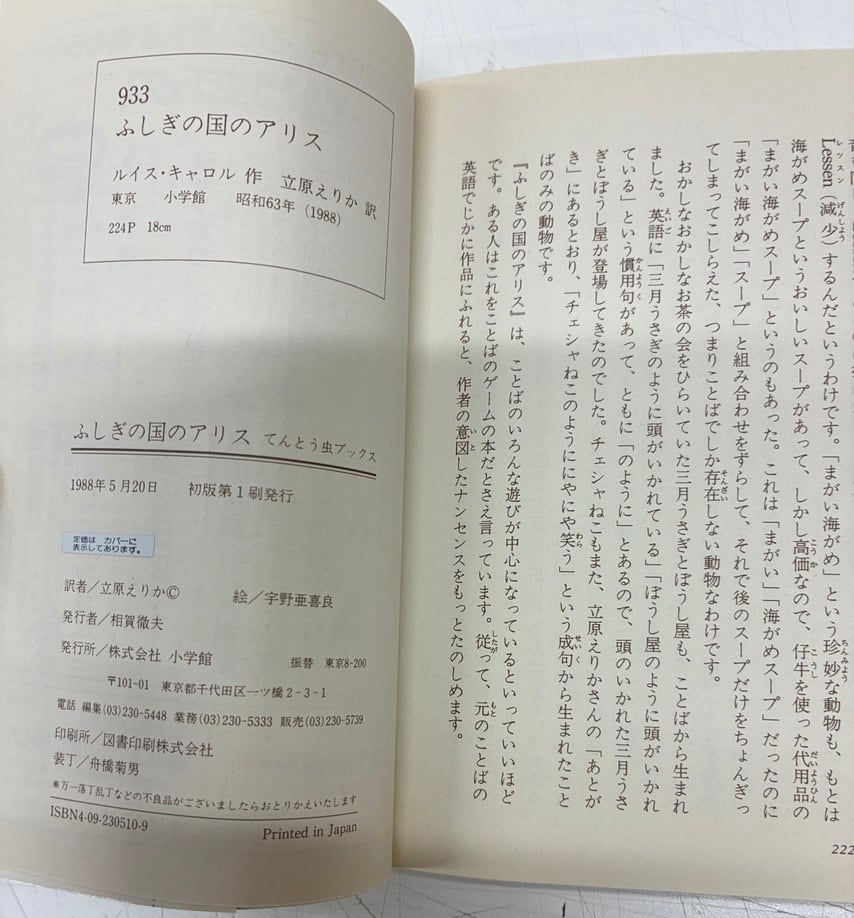 レッスン げんしょう ちんみよう
Lessen（減少）するんだというわけです。「まがい海がめ」という珍妙な動物も、もとは
こうか こうし だいようひん
海がめスープというおいしいスープがあって、しかし高価なので、仔牛を使った代用品の
「まがい海がめスープ」というのもあった。これは「まがい」「海がめスープ」だったのに
「まがい海がめ」「スープ」と組み合わせをずらして、それで後のスープだけをちょんぎっ
そんざい
てしまってこしらえた、つまりことばでしか存在しない動物なわけです。
おかしなおかしなお茶の会をひらいていた三月うさぎとぼうし屋も、ことばから生まれ
えいご
ました。英語に「三月うさぎのように頭がいかれている」「ぼうし屋のように頭がいかれ
かんようく
ている」という慣用句があって、ともに「のように」とあるので、頭のいかれた三月うさ
ぎとぼうし屋が登場してきたのでした。チェシャねこもまた、立原えりかさんの「あとが
わら せいく
き」にあるとおり、「チェシャねこのようににやにや笑う」という成句から生まれたこと
ばのみの動物です。
『ふしぎの国のアリス』は、ことばのいろんな遊びが中心になっているといっていいほど
したが もと
です。ある人はこれをことばのゲームの本だとさえ言っています。従って、元のことばの
いと
英語でじかに作品にふれると、作者の意図したナンセンスをもっとたのしめます。
222
933
ふしぎの国のアリス
ルイス・キャロル 作 立原えりか 訳
東京 小学館 昭和63年（1988）
224P 18cm
ふしぎの国のアリス てんとう虫ブックス
1988年5月20日 初版第1刷発行
定価は カバーに
表示してあります。
訳者／立原えりか© 絵／宇野亜喜良
発行者／相賀徹夫
発行所／株式会社 小学館 振替 東京8-200
〒101-01 東京都千代田区一ツ橋2-3-1
電話 編集(03)230-5448 業務(03)230-5333 販売(03)230-5739
印刷所／図書印刷株式会社
装丁／舟橋菊男
※万一落丁乱丁などの不良品がございましたらおとりかえいたします
ISBN4-09-230510-9
Printed in Japan